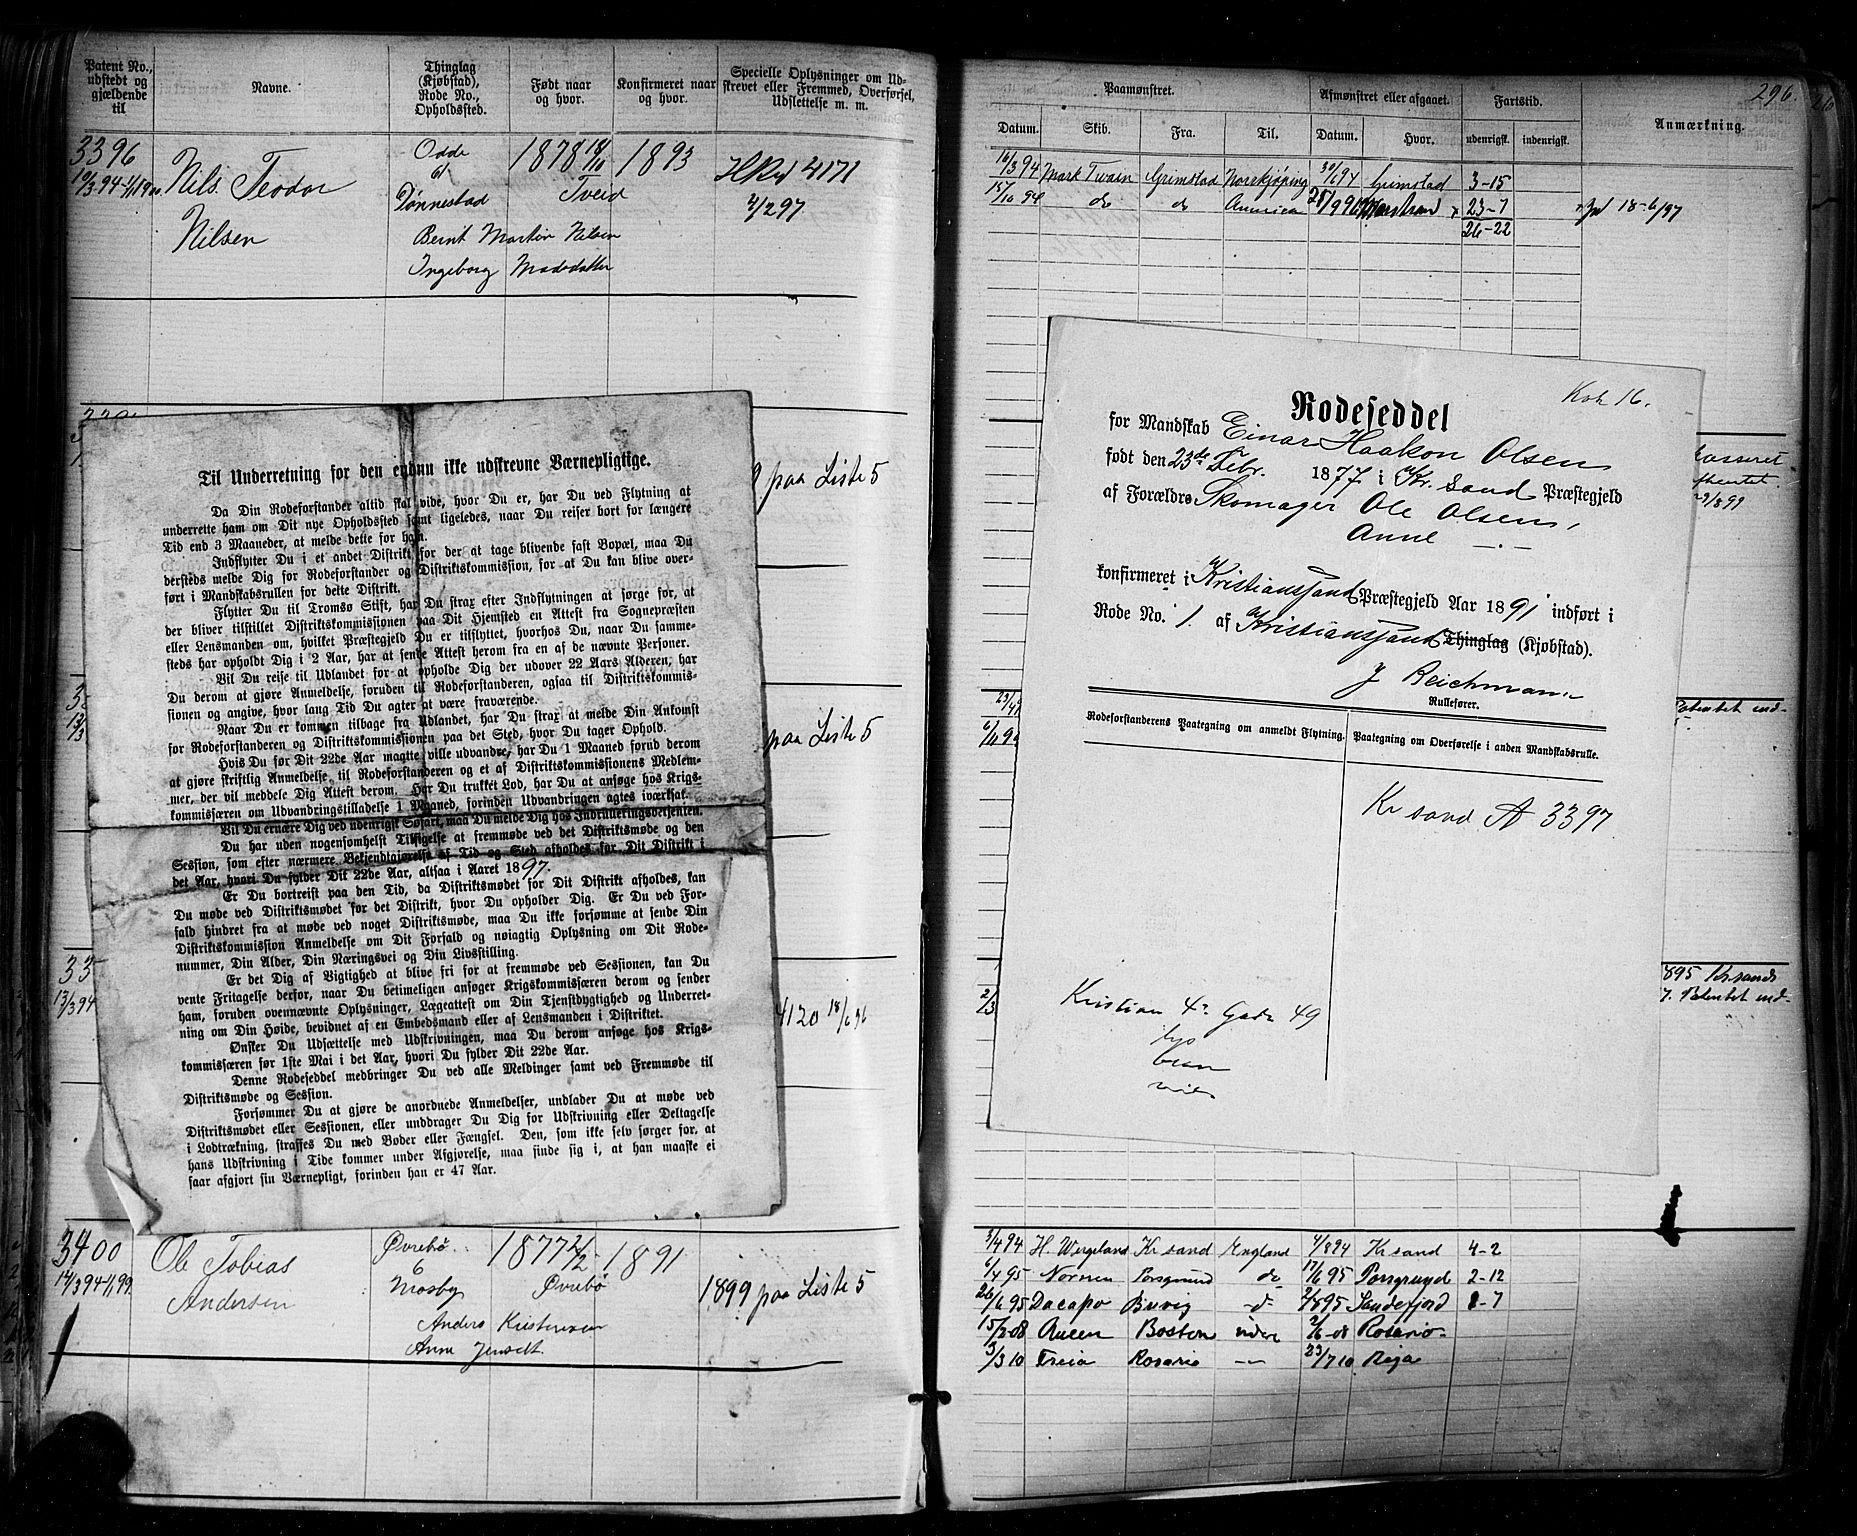 Patent No., udstedt og gjældende til
Navne.
Thinglag (Kjøbstad), Rode No., Opholdssted.
Født naar og hvor.
Konfirmeret naar og hvor.
Specielle Oplysninger om Udskrevet eller Fremmed, Overførsel, Udslettelse m. m.
3396
10/3 94-1/1 19
Nils Teodor
Nilsen
Odde
61
Tønnestad
1878 18/11
Tveid
1893
Bernt Martin Nilsen
Ingeborg Madsdatter
H Rul 4171
2/2 97
9 paa Liste 5
paa Liste 5
13/3 94
4120 18/6 96
Til Underretning for den endnu ikke udskrevne Værnepligtige.
Da Din Rodeforstander altid skal vide, hvor Du er, har Du ved Flytning at
underrette ham om Dit nye Opholdssted samt ligeledes, naar Du reiser bort for længere
Tid end 3 Maaneder, at melde dette for ham.
Indflytter Du i et andet Distrikt for der at tage blivende fast Bopæl, maa Du
dersteds melde Dig for Rodeforstander og Distriktskommission, for at Du kan blive over-
ført i Mandskabsrullen for dette Distrikt.
Flytter Du til Tromsø Stift, har Du strax efter Indflytningen at sørge for, at
der bliver tilstillet Distriktskommissionen paa Dit Hjemsted en Attest fra Sognepræsten
eller Lensmanden om, hvilket Præstegjeld Du er tilflyttet, hvorhos Du, naar Du samme-
steds har opholdt Dig i 2 Aar, har at sende Attest herom fra en af de nævnte Personer.
Vil Du reise til Udlandet for at opholde Dig der udover 22 Aars Alderen, har
Du derom at gjøre Anmeldelse, foruden til Rodeforstanderen, ogsaa til Distriktskommis-
sionen og angive, hvor lang Tid Du agter at være fraværende.
Naar Du er kommen tilbage fra Udlandet, har Du strax at melde Din Ankomst
for Rodeforstanderen og Distriktskommissionen paa det Sted, hvor Du tager Ophold.
Hvis Du før Dit 22de Aar maatte ville udvandre, har Du 1 Maaned forud derom
at gjøre skriftlig Anmeldelse til Rodeforstanderen og et af Distriktskommissionens Medlem-
mer, der vil meddele Dig Attest derom. Har Du trukket Lod, har Du at ansøge hos Krigs-
kommissæren om Udvandringstilladelse 1 Maaned, forinden Udvandringen agtes iværksat.
Vil Du ernære Dig ved udenrigsk Søfart, maa Du melde Dig hos Indrulleringsbetjenten.
Du har uden nogensomhelst Tilsigelse at fremmøde ved det Distriktsmøde og den
Session, som efter nærmere Bekjendtgjørelse af Tid og Sted afholdes for Dit Distrikt i
det Aar, hvori Du fylder Dit 22de Aar, altsaa i Aaret 1897.
Er Du bortreist paa den Tid, da Distriktsmødet for Dit Distrikt afholdes, kan
Du møde ved Distriktsmødet for det Distrikt, hvor Du opholder Dig. Er Du ved For-
fald hindret fra at møde ved noget Distriktsmøde, maa Du ikke forsømme at sende Din
Distriktskommission Anmeldelse om Dit Forfald og nøiagtig Oplysning om Dit Rode-
nummer, Din Alder, Din Næringsvei og Din Livsstilling.
Er det Dig af Vigtighed at blive fri for at fremmøde ved Sessionen, kan Du
vente Fritagelse derfor, naar Du betimeligen ansøger Krigskommissæren derom og sender
ham, foruden ovennævnte Oplysninger, Lægeattest om Din Tjenstbygtighed og Underret-
ning om Din Høide, bevidnet af en Embedsmand eller af Lensmanden i Distriktet.
Ønsker Du Udsættelse med Udskrivningen, maa Du derom ansøge hos Krigs-
kommissæren før 1ste Mai i det Aar, hvori Du fylder Dit 22de Aar.
Denne Rodeseddel medbringer Du ved alle Meldinger samt ved Fremmøde til
Distriktsmøde og Session.
Forsømmer Du at gjøre de anordnede Anmeldelser, undlader Du at møde ved
Distriktsmødet eller Sessionen, eller unddrager Du Dig for Udskrivning eller Deltagelse
i Lodtrækning, straffes Du med Bøder eller Fængsel. Den, som ikke selv sørger for, at
hans Udskrivning i Tide kommer under Afgjørelse, maa finde sig i, at han maaske ei
faar afgjort sin Værnepligt, forinden han er 47 Aar.
3400
14/3 94-1/1 99
Ole Tobias
Andersen
Øvrebø
6
Mosby
1877 2/2
Øvrebø
1891
Anders Kristensen
Anne Jensdt.
1899 paa Liste 5
296.
Paamønstret.
Afmønstret eller afgaaet.
Fartstid.
Anmærkning.
Datum. Skib. Fra. Til. Datum. Hvor. udenrigsk. indenrigsk.
16/3 94 Mark Twain Grimstad Norrkjøping 30/6 94 Grimstad 3-15
15/10 94 do do America 25/9 96 Marstrand x 23-7 x 18-6/97
26-22
29/8 99
Patentet ind-
895 Kr.sands
7. Patentet ind-
Kok 16.
Rodeseddel
for Mandskab Einar Haakon Olsen
født den 23de Febr. 1877 i Kr. sand Præstegjeld
af Forældre Skomager Ole Olsen,
Anne —.—
konfirmeret i Kristianssand Præstegjeld Aar 1891 indført i
Rode No. 1. af Kristianssand Thinglag (Kjøbstad).
J Reichmann
Rulleførerer.
Rodeforstanderens Paategning om anmeldt Flytning.
Paategning om Overførelse i anden Mandskabsrulle.
Kr sand A 3397
Kristian 4s Gade 49
lys
brun
3/4 94 H. Wergeland Kr sand England 4/8 94 Kr sand 4-2
6/4 95 Nornen Porsgrund do 17/6 95 Porsgrund 2-12
26/6 95 Dacapo Brevig -d- 2/8 95 Sandefjord 1-7
15/2 08 Queen Boston indre 2/6-08 Rosario
3/3 10 Freia Rosario — 23/7 10 Riga